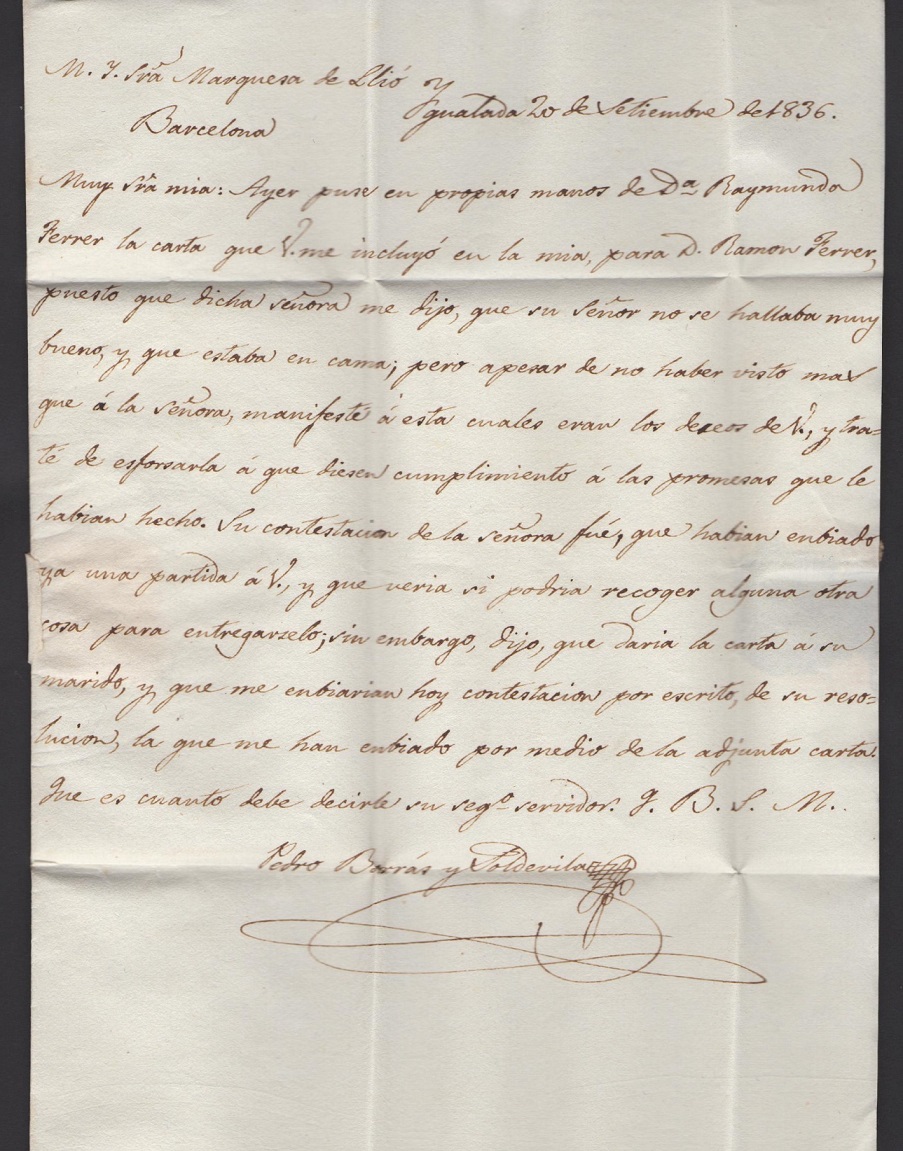 M. Y. Srã Marquesa de Llió y
Barcelona
Ygualada 20 de Setiembre de 1836.
Muy Srã mia: Ayer puse en propias manos de Dª Raymunda
Ferrer la carta que V. me incluyó en la mia, para D. Ramon Ferrer,
puesto que dicha señora me dijo, que su Señor no se hallaba muy
bueno, y que estaba en cama; pero apesar de no haber visto mas
que á la Señora, manifesté á esta cuales eran los deseos de V., y tra=
té de esforsarla á que diesen cumplimiento á las promesas que le
habian hecho. Su contestacion de la señora fué, que habian enbiado
ya una partida á V., y que veria si podria recoger alguna otra
cosa para entregarselo; sin embargo, dijo, que daria la carta á su
marido, y que me enbiarian hoy contestacion por escrito, de su reso=
lucion, la que me han enbiado por medio de la adjunta carta.
Que es cuanto debe decirle su segº servidor. Q. B. S. M..
Pedro Borrás y Soldevila